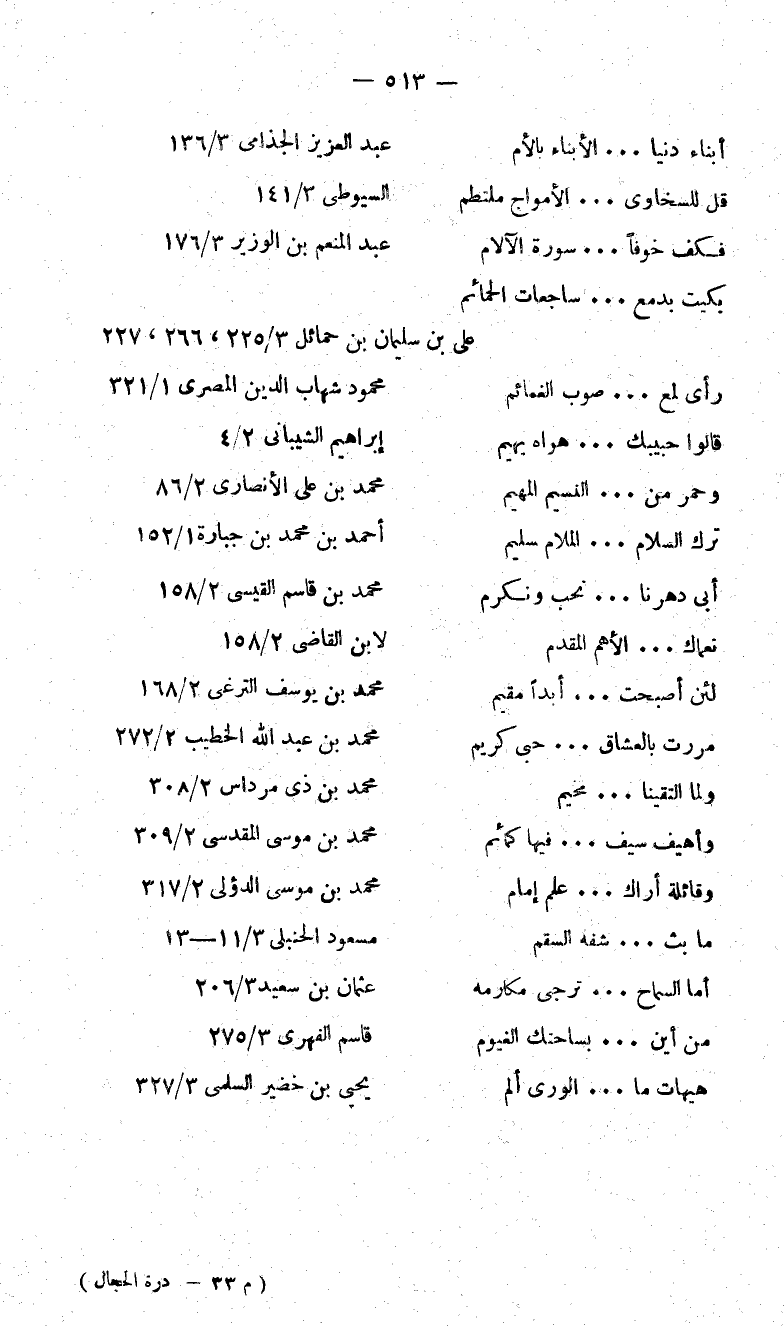 — ٥١٣ —
أبناء دنيا ... الأبناء بالأم عبد العزيز الجذامى ١٣٦/٣
قل للسخاوى ... الأمواج ملتطم السيوطى ١٤١/٣
فكف خوفاً ... سورة الآلام عبد المنعم بن الوزير ١٧٦/٣
بكيت بدمع ... ساجعات الحمائم
على بن سليمان بن حمائل ٢٢٥/٣ ، ٢٦٦ ، ٢٢٧
رأى لمع ... صوب الغمائم محمود شهاب الدين المصرى ٣٢١/١
قالوا حبيبك ... هواه يهيم إبراهيم الشيبانى ٤/٢
وحمر من ... النسيم المهيم محمد بن على الأنصارى ٨٦/٢
ترك السلام ... الملام سليم أحمد بن محمد بن جبارة ١٥٢/١
أبى دهرنا ... نحب ونكرم محمد بن قاسم القيسى ١٥٨/٢
نعماك ... الأهم المقدم لابن القاضى ١٥٨/٢
لئن أصبحت ... أبداً مقيم محمد بن يوسف الترغى ١٦٨/٢
مررت بالعشاق ... حبى كريم محمد بن عبد الله الخطيب ٢٧٢/٢
ولما التقينا ... مخيم محمد بن ذى مرداس ٣٠٨/٢
وأهيف سيف ... فيها كمائم محمد بن موسى المقدسى ٣٠٩/٢
وقائلة أراك ... علم إمام محمد بن موسى الدؤلى ٣١٧/٢
ما بث ... شفه السقم مسعود الحنبلى ١١/٣—١٣
أما السماح ... ترجى مكارمه عثمان بن سعيد ٢٠٦/٣
من أين ... بساحتك الغيوم قاسم الفهرى ٢٧٥/٣
هيهات ما ... الورى ألم يحيى بن خضير السلمى ٣٢٧/٣
( م ٣٣ — درة الحجال )